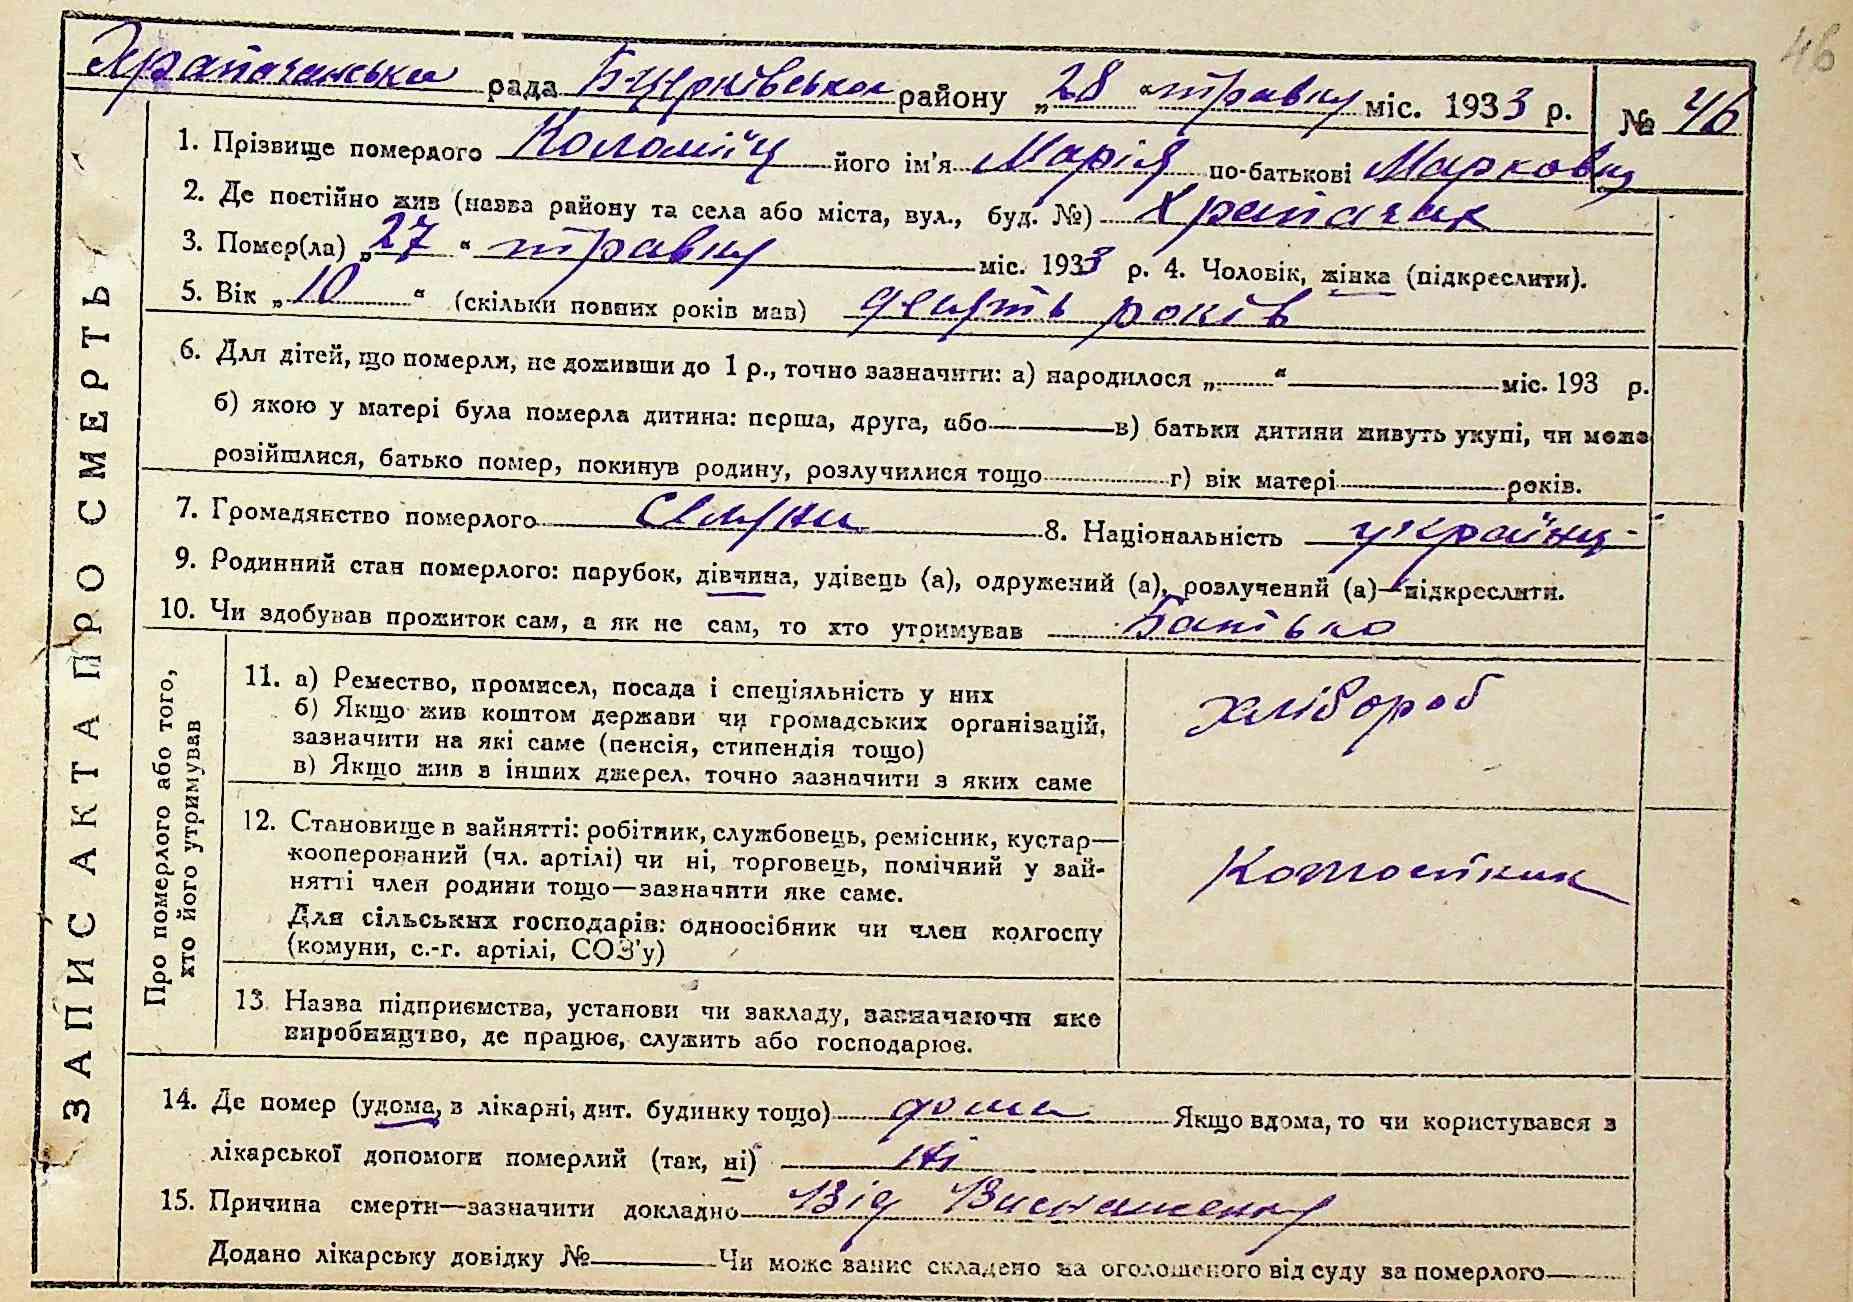 46
Храпачанська рада Б-Церківського району „28“ травня міс. 1933 р. № 46
ЗАПИС АКТА ПРО СМЕРТЬ
1. Прізвище померлого Коломієць його ім'я Марія по-батькові Марковна
2. Де постійно жив (назва району та села або міста, вул., буд. №) Храпачах
3. Помер(ла) „27“ травня міс. 1933 р. 4. Чоловік, жінка (підкреслити).
5. Вік „10“ (скільки повних років мав) десять років
6. Для дітей, що померли, не доживши до 1 р., точно зазначити: а) народилося „ “ міс. 193 р.
б) якою у матері була померла дитина: перша, друга, або в) батьки дитини живуть укупі, чи може
розійшлися, батько помер, покинув родину, розлучилися тощо г) вік матері років.
7. Громадянство померлого 8. Національність українц-
9. Родинний стан померлого: парубок, дівчина, удівець (а), одружений (а), розлучений (а)—підкреслити.
10. Чи здобував прожиток сам, а як не сам, то хто утримував Батько
Про померлого або того,
хто його утримував
11. а) Ремество, промисел, посада і спеціяльність у них
б) Якщо жив коштом держави чи громадських організацій,
зазначити на які саме (пенсія, стипендія тощо)
в) Якщо жив з інших джерел, точно зазначити з яких саме
хлібороб
12. Становище в зайнятті: робітник, службовець, ремісник, кустар—
кооперований (чл. артілі) чи ні, торговець, помічний у зай-
нятті член родини тощо—зазначити яке саме.
Для сільських господарів: одноосібник чи член колгоспу
(комуни, с.-г. артілі, СОЗ'у)
13. Назва підприємства, установи чи закладу, зазначаючи яке
виробництво, де працює, служить або господарює.
14. Де помер (удома, в лікарні, дит. будинку тощо) дома Якщо вдома, то чи користувався з
лікарської допомоги померлий (так, ні) ні
15. Причина смерти—зазначити докладно Від Виснаження
Додано лікарську довідку № Чи може запис складено на оголошеного від суду за померлого